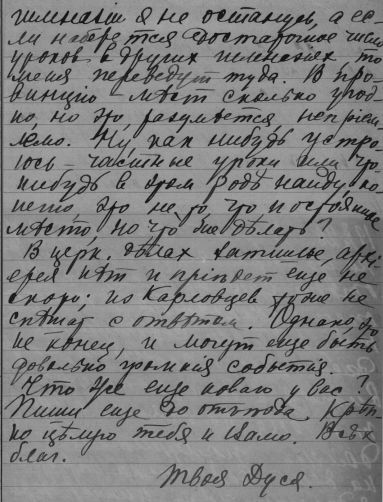 гимназіи я не останусь, а ес-
ли наберется достаточное число
уроков в других гимназіях, то
меня переведут туда. В про-
винцію мѣст сколько угод-
но, но это разумѣется непріем-
лемо. Ну, как нибудь устро-
юсь – частные уроки или что-
нибудь в этом родѣ найду ко-
нечно, это не то, что постоянное
мѣсто, но что же дѣлать?
В церк. дѣлах затишье, архі-
ерея нѣт и пріѣдет еще не
скоро; из Карловцев тоже не
спѣшат с отвѣтом. Однако, это
не конец, и могут еще быть
довольно громкія событія.
Что же еще новаго у вас?
Пиши еще до отъѣзда. Крѣп-
ко цѣлую тебя и маму. Всѣх
благ.
Твоя Дуся.